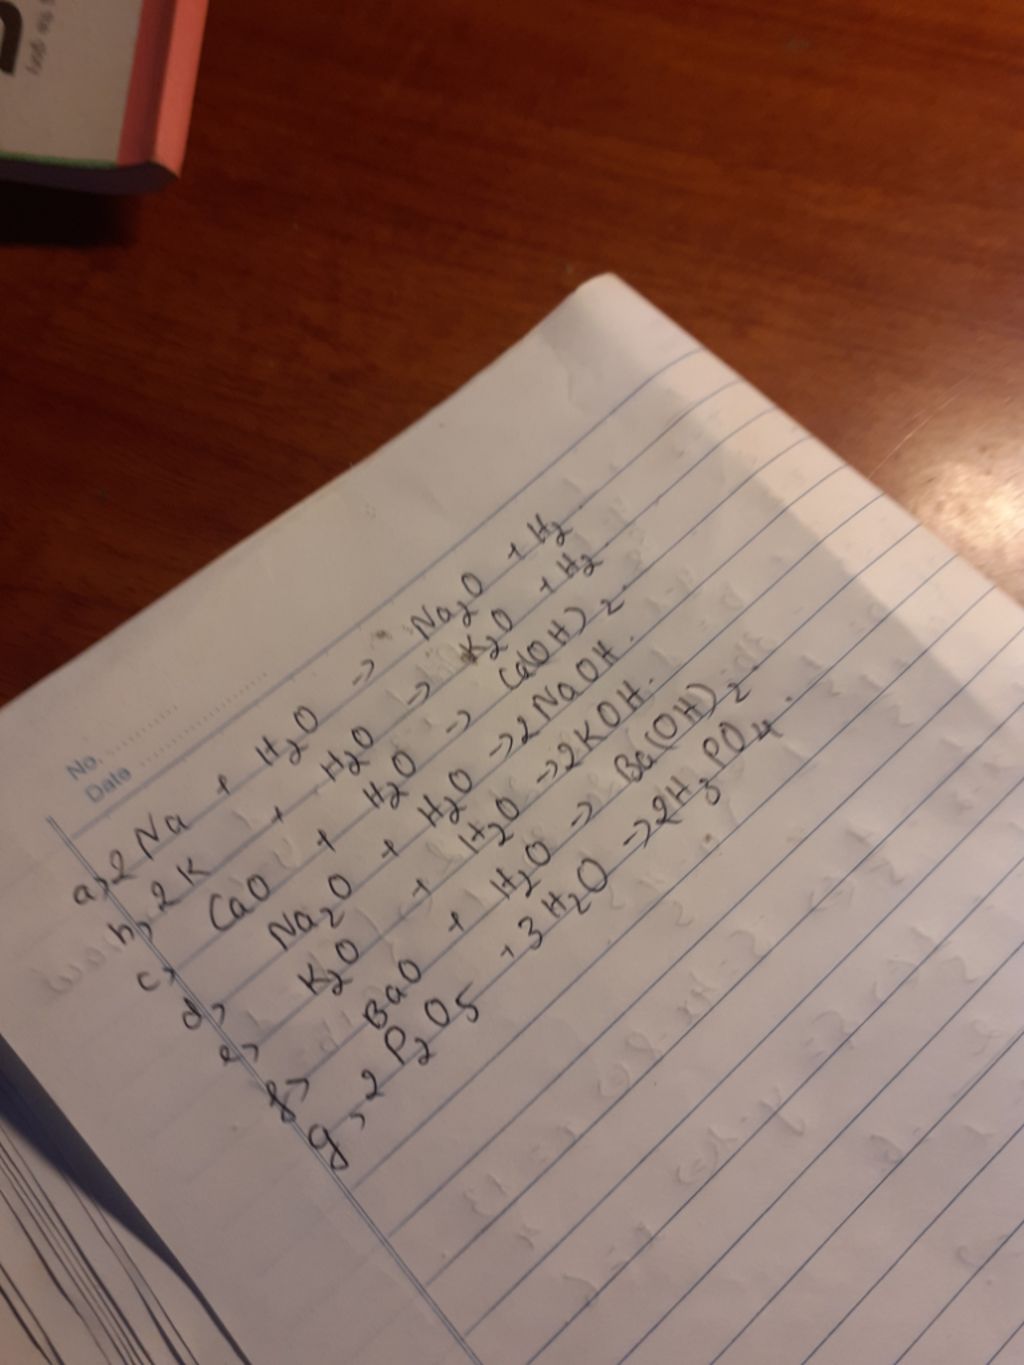 No.
Date
a, 2 Na + H2O -> Na2O + H2.
b, 2 K + H2O -> K2O + H2
c, CaO + H2O -> Ca(OH)2.
d, Na2O + H2O -> 2NaOH.
e, K2O + H2O -> 2KOH.
f, BaO + H2O -> Ba(OH)2.
g, 2 P2O5 + 3H2O -> 2H3PO4.